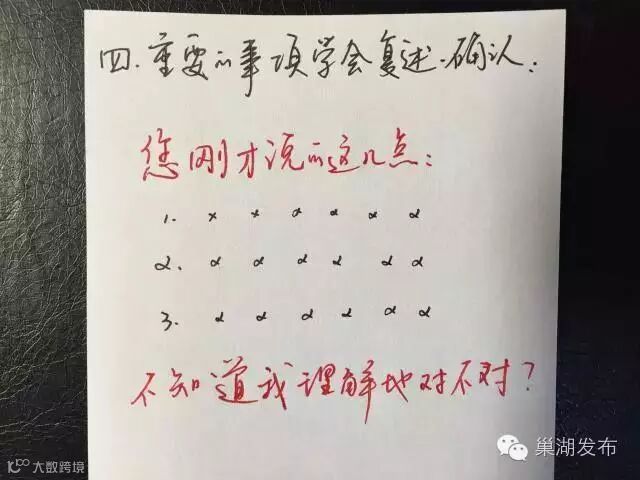 四.重要的事项学会复述.确认:
您刚才说的这几点:
1. x x x x x x
2. x x x x x x
3. x x x x x x
不知道我理解地对不对?
巢湖发布
大数跨境